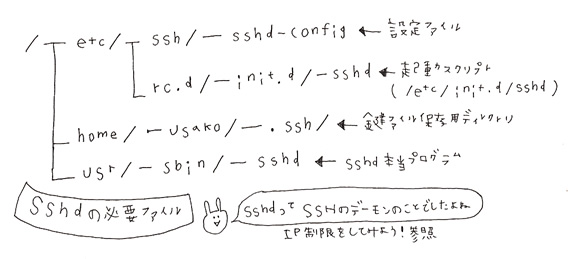 / etc/ ssh/ sshd-config ← 設定ファイル
rc.d/ init.d/ sshd ← 起動スクリプト
(/etc/init.d/sshd)
home/ usako/ .ssh/ ← 鍵ファイル保存用ディレクトリ
usr/ sbin/ sshd ← sshd本当プログラム
sshdの必要ファイル
sshdって SSHのデーモンのことでしたよね
IP制限をしてみよう!参照